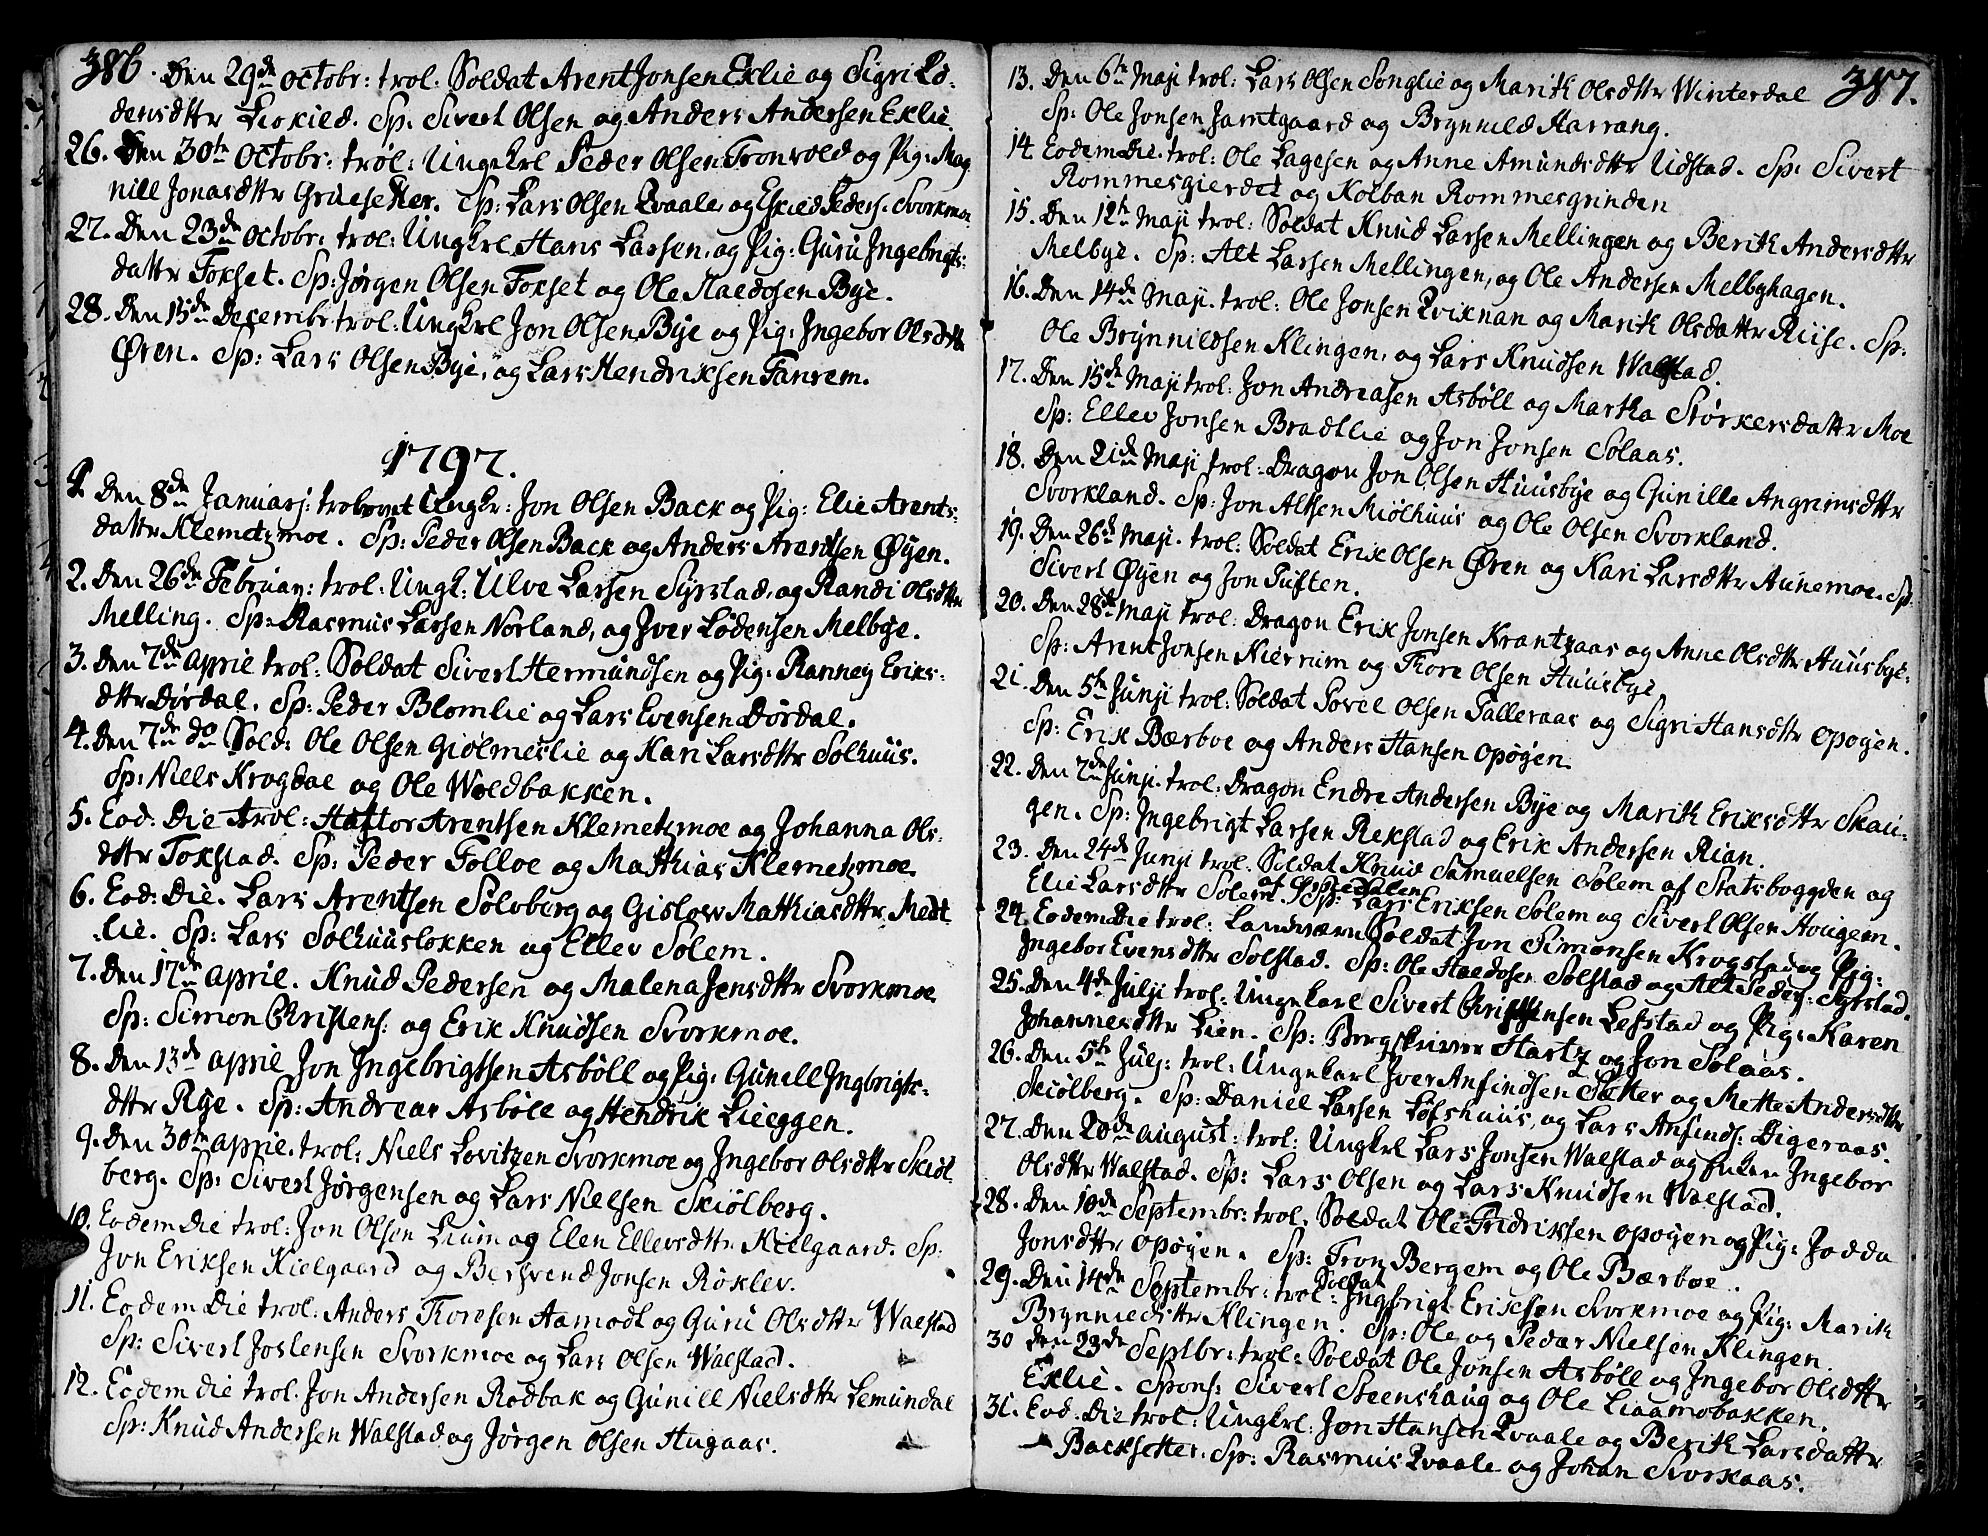 386. Den 29de Octobr: trol. Soldat Arent Jonsen Eklie og Sigri Lo-
densdttr Liokild. Sp. Sivert Olsen og Anders Andersen Eklie.
26. Den 30te Octobr: trol: Ungkrl Peder Olsen Tronvold og Pig: Mag
nill Jonasdttr Gruesetter. Sp: Lars Olsen Qvaale og Eskild Peders: Svorkmoe
27. Den 23de Octobr: trol: Ungkrl Hans Larsen, og Pig: Guru Ingebrigts:
dattr Fokset. Sp: Jørgen Olsen Fokset og Ole Haldosen Bye.
28. Den 15de Decembr trol: Ungkrl Jon Olsen Bye og Pig: Ingebor Olsdttr
Øren. Sp: Lars Olsen Bye, og Lars Hendriksen Fanrem.
1797.
1. Den 8de Januarj: trolovet Ungkr: Jon Olsen Back og Pig: Elie Arents-
dattr Klemetzmoe. Sp: Peder Olsen Back og Anders Arentsen Øyen.
2. Den 26de Februar: trol: Ungk: Ulve Larsen Syrstad, og Randi Olsdttr
Melling. Sp: Rasmus Larsen Norland, og Iver Lodensen Melbye.
3. Den 7de April trol: Soldat Sivert Hermundsen og Pig: Ranney Eriks-
dttr Dørdal. Sp: Peder Blomlie og Lars Evensen Dørdal.
4. Den 7de do Sold: Ole Olsen Giølmeslie og Kari Larsdttr Solhuus.
Sp: Niels Krogdal og Ole Woldbakken.
5. Eod: Die trol: Haftor Arentsen Klemetzmoe og Johanna Ols-
dttr Fokstad. Sp: Peder Solloe og Matthias Klemetzmoe.
6. Eod: Die. Lars Arentsen Solberg og Gislow Matthiasdttr Medt
lie. Sp: Lars Solhuusløkken og Ellev Solem.
7. Den 17de April. Knud Pedersen og Malena Jensdttr Svorkmoe.
Sp: Simon Christens: og Erik Knudsen Svorkmoe.
8. Den 13de April Jon Ingebrigtsen Asbøll og Pig: Gunill Ingbrigts-
dttr Rye. Sp: Andreas Asbøll og Hendrik Lieeggen.
9. Den 30te April. trol: Niels Lovitzen Svorkmoe og Ingebor Olsdttr Skiøl
berg. Sp: Sivert Jørgensen og Lars Nielsen Skiølberg.
10. Eodem Die trol: Jon Olsen Lium og Elen Ellevsdttr Kielgaard. Sp:
Jon Eriksen Kielgaard og Bersvend Jonsen Røklev.
11. Eodem Die trol: Anders Thoresen Aamodt og Guru Olsdttr Walstad
Sp: Sivert Joslensen Svorkmoe og Lars Olsen Walstad.
12. Eodem die trol. Jon Andersen Rodbak og Gunill Nielsdttr Lemundal
Sp: Knud Andersen Walstad og Jørgen Olsen Hugaas.
387.
13. Den 6te Maji trol: Lars Olsen Songlie og Marith Olsdttr Winterdal
Sp: Ole Jonsen Jamtgaard og Brynnild Harrang.
14. Eodem Die. trol: Ole Lagesen og Anne Amundsdttr Udstad. Sp: Sivert
Rommesgierdet og Kolban Rommesgrinden
15. Den 12te Maji trol: Soldat Knud Larsen Mellingen og Berith Andersdttr
Melbye. Sp: Alt Larsen Mellingen, og Ole Andersen Melbyhagen.
16. Den 14de Maji. trol: Ole Jonsen Qviknan og Marith Olsdattr Riise. Sp:
Ole Brynnildsen Klingen, og Lars Knudsen Walstad.
17. Den 15de Maji trol: Jon Andreasen Asbøll og Martha Størkersdattr Moe
Sp: Ellev Jonsen Bradtlie og Jon Jonsen Solaas.
18. Den 21de Maji trol: Dragon Jon Olsen Huusbye og Gunille Angrimsdttr
Svorkland. Sp: Jon Altsen Miølhuus og Ole Olsen Svorkland.
19. Den 26de Maji. trol: Soldat Erik Olsen Øren og Kari Larsdttr Aunemoe. Sp:
Sivert Øyen og Jon Tuften.
20. Den 28de Maji trol: Dragon Erik Jonsen Krantzaas og Anne Olsdttr Huusbye.
Sp: Arent Jonsen Nierrum og Thore Olsen Huusbye
21. Den 5te Junji trol: Soldat Povel Olsen Talleraas og Sigri Hansdttr Opøyen.
Sp: Erik Bærboe og Anders Hansen Opøyen.
22. Den 7de Junji. trol: Dragon Endre Andersen Bye og Marith Eriksdttr Skau-
gen. Sp: Ingebrigt Larsen Rekstad og Erik Andersen Rian.
23. Den 24de Junji trol. Soldat Knud Samuelsen Solem af Statsboggden og
Elie Larsdttr Solem Sp: Lars Eriksen Solem og Sivert Olsen Hougem.
24. Eodem Die trol: Landværn Soldat Jon Simonsen Krogstad og Pig:
Ingebor Evensdttr Solstad. Sp: Ole Haldosen Solstad og Alt Peders: Syrstad.
25. Den 4de Julji trol: Ungekarl Sivert Christensen Lefstad og Pig: Karen
Johannesdttr Lien. Sp: Bergskriver Hartz og Jon Solaas.
26. Den 5te Julj: trol: Ungekarl Iver Anfindsen Sætter og Mette Andersdttr
Skiølberg. Sp: Daniel Larsen Løfshuus, og Lars Anfinds: Digeraas.
27. Den 20de August: trol: Ungkrl Lars Jonsen Walstad og Enken Ingebor
Olsdttr Walstad. Sp: Lars Olsen og Lars Knudsen Walstad.
28. Den 10de Septembr: trol. Soldat Ole Fridriksen Opøyen og Pig: Jodda
Jonsdttr Opøyen. Sp: Tron Bergem og Ole Bærboe.
29. Den 14de Septembr: trol: Soldat Ingebrigt Eriksen Svorkmoe og Pig: Marith
Brynnildsdttr Klingen. Sp: Ole og Peder Nielsen Klingen.
30 Den 23de Septbr: trol: Soldat Ole Jonsen Asbøll og Ingebor Olsdttr
Eklie. Spons: Sivert Steenshaug og Ole Liaamobakken.
31. Eod. Die trol: Ungkrl: Jon Hansen Qvaale og Berith Larsdattr
Backsetter. Sp: Rasmus Qvaale og Johan Svorkaas.